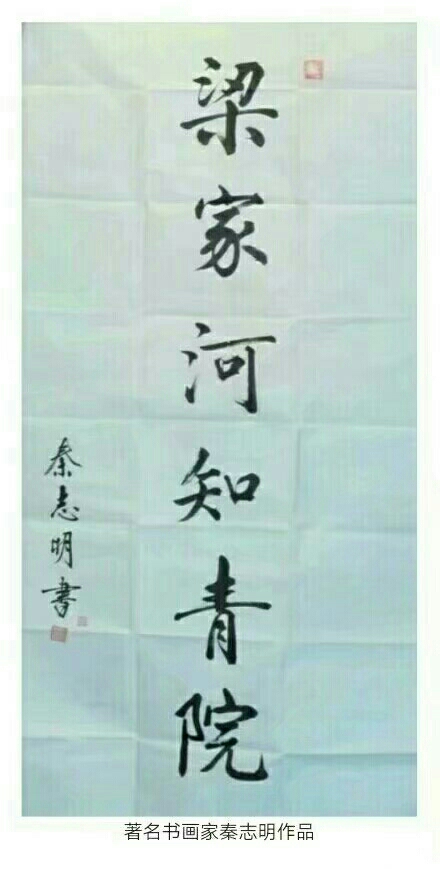 梁家河知青院
秦志明書
著名书画家秦志明作品